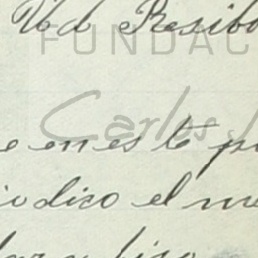 Vd Resibo
FUNDAC
Carlos J
e en es te p
iodico el me